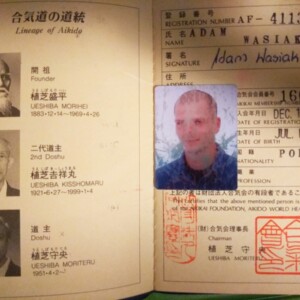 合気道の道統
Lineage of Aikido
開祖
Founder
植芝盛平
UESHIBA MORIHEI
1883-12-14~1969-4-26
二代道主
2nd Doshu
植芝吉祥丸
UESHIBA KISSHOMARU
1921-6-27~1999-1-4
道主
植芝守央
UESHIBA MORITERU
1951-4-2~
登録番号
REGISTRATION NUMBER AF-411
氏名 ADAM
NAME WASIAK
署名
SIGNATURE Adam Wasiak
住所
ADDRESS
DEC. 1
DATE OF REGISTRATION
PROFESSION
上記の者は財団法人合気会の有段者であるこ
that the above mentioned person is
AIKIKAI FOUNDATION, AIKIDO WORLD HEA
(財)合気会理事長
Chairman
植芝守央
UESHIBA MORITERU